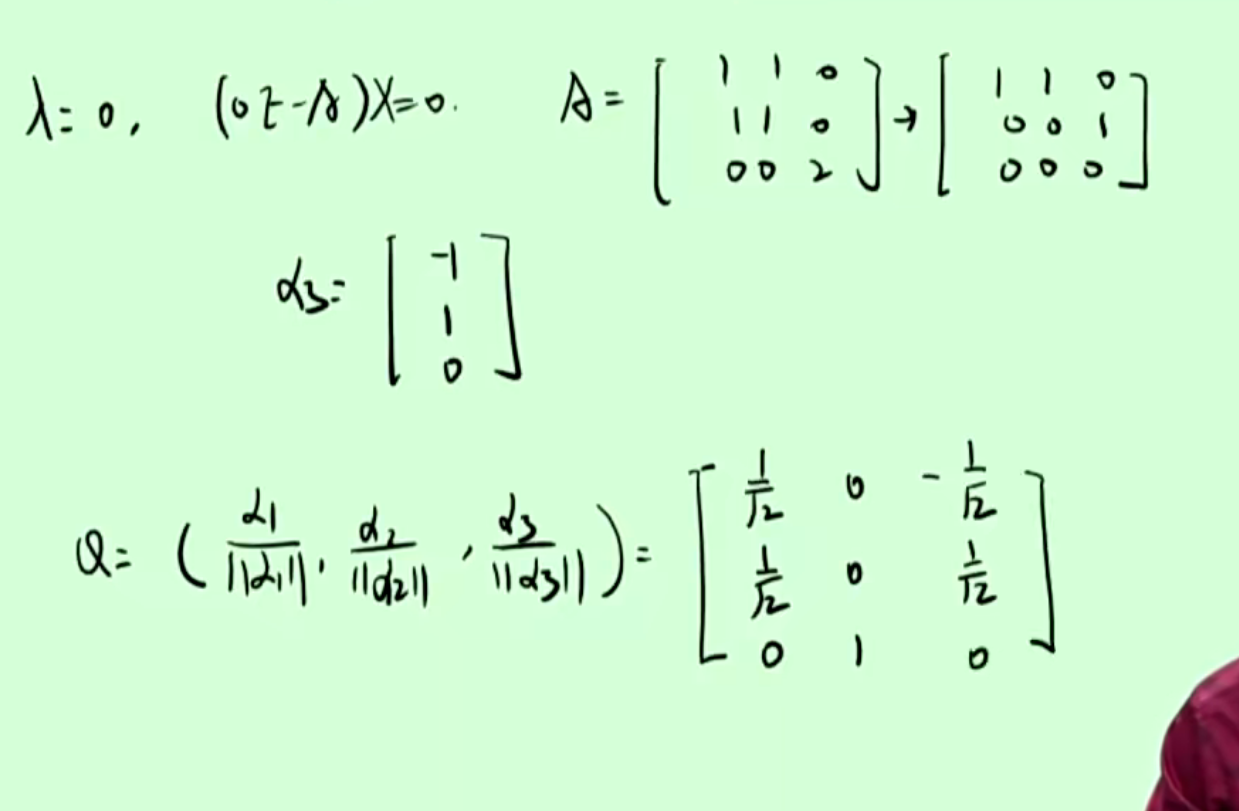 λ=0, (0E-A)X=0. A= [1 1 0; 1 1 0; 0 0 2] → [1 1 0; 0 0 1; 0 0 0]
α3= [-1; 1; 0]
Q= (α1/||α1||, α2/||α2||, α3/||α3||)= [1/√2 0 -1/√2; 1/√2 0 1/√2; 0 1 0]